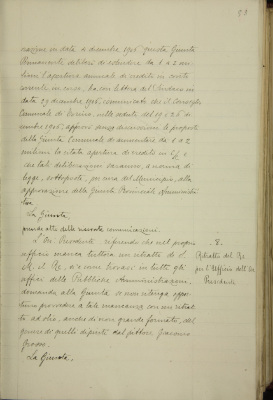 83
nazione in data 4 dicembre 1906 questa Giunta
Permanente deliberò di estendere da 1 a 2 mi-
lioni l'apertura annuale di credito in conto
corrente in corso, ha con lettera del Sindaco in
data 29 dicembre 1906, comunicato che il Consiglio
Comunale di Torino, nelle sedute del 19 e 26 di-
cembre 1906, approvò senza discussione le proposte
della Giunta Comunale di aumentare da 1 a 2
milioni la citata apertura di credito in c/c e
che tale deliberazione saranno, a norma di
legge, sottoposte, per cura del Municipio, alla
approvazione della Giunta Provinciale Amministra-
tiva
La Giunta
prende atto delle suavute comunicazioni.
L'On. Presidente riferendo che nel proprio
ufficio manca tuttora un ritratto di S.
M. il Re, che trovasi in tutti gli
uffici delle Pubbliche Amministrazioni,
domanda alla Giunta se non ritenga oppor-
tuno provvedere a tale mancanza con un ritrat-
to ad olio, anche di non grande formato, del
genere di quelli dipinti dal pittore Giacomo
Grosso.
La Giunta,
8.
Ritratto del Re
per l'ufficio dell'On.
Presidente